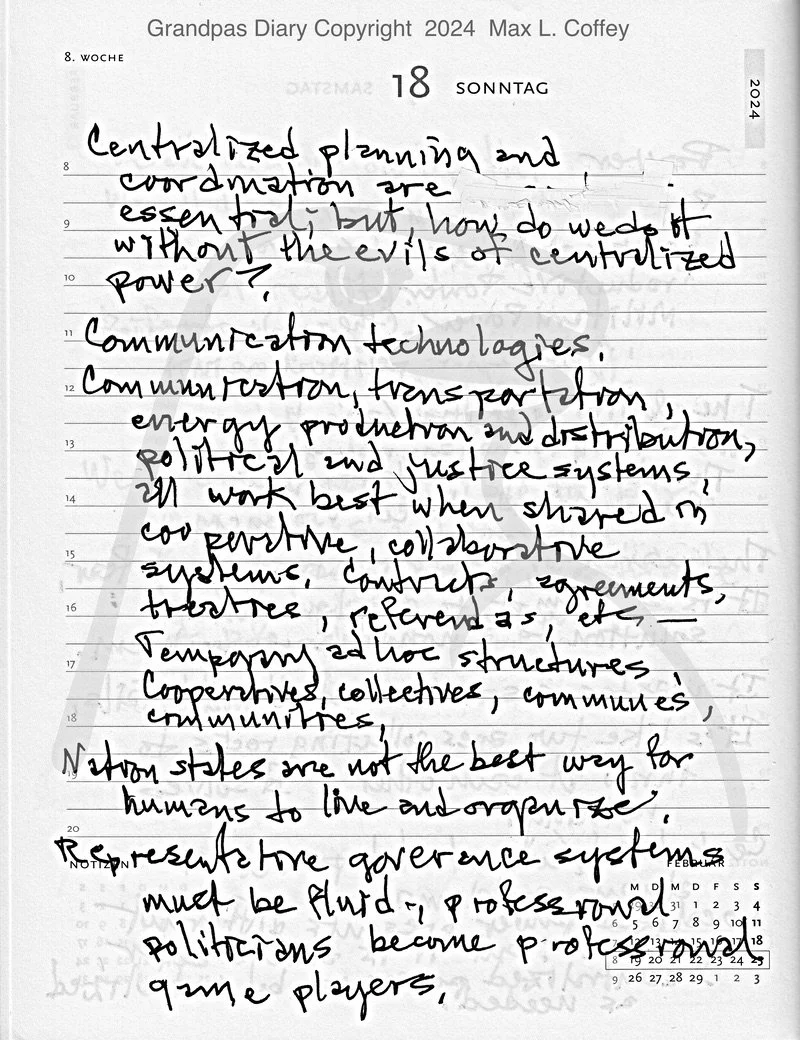 Grandpas Diary Copyright 2024 Max L. Coffey
8. WOCHE
18 SONNTAG
2024
Centralized planning and
8
coordination are
essential; but, how do we do it
9
without the evils of centralized
10
power?
11
Communication technologies.
12
Communication, transportation,
energy production and distribution,
13
political and justice systems,
14
all work best when shared in
cooperative, collaborative
15
systems. Contracts, agreements,
16
treaties, referendas, etc —
Temporary ad hoc structures.
17
Cooperatives, collectives, communes,
18
communities,
Nation states are not the best way for
19
humans to live and organize.
20
Representative goverance systems
NOTIZEN
FEBRUAR
must be fluid -, professional
M D M D F S S
31 1 2 3 4
6 5 6 7 8 9 10 11
politicians become professional
12 13 14 15 16 17 18
8 19 20 21 22 23 24 25
game players.
9 26 27 28 29 1 2 3